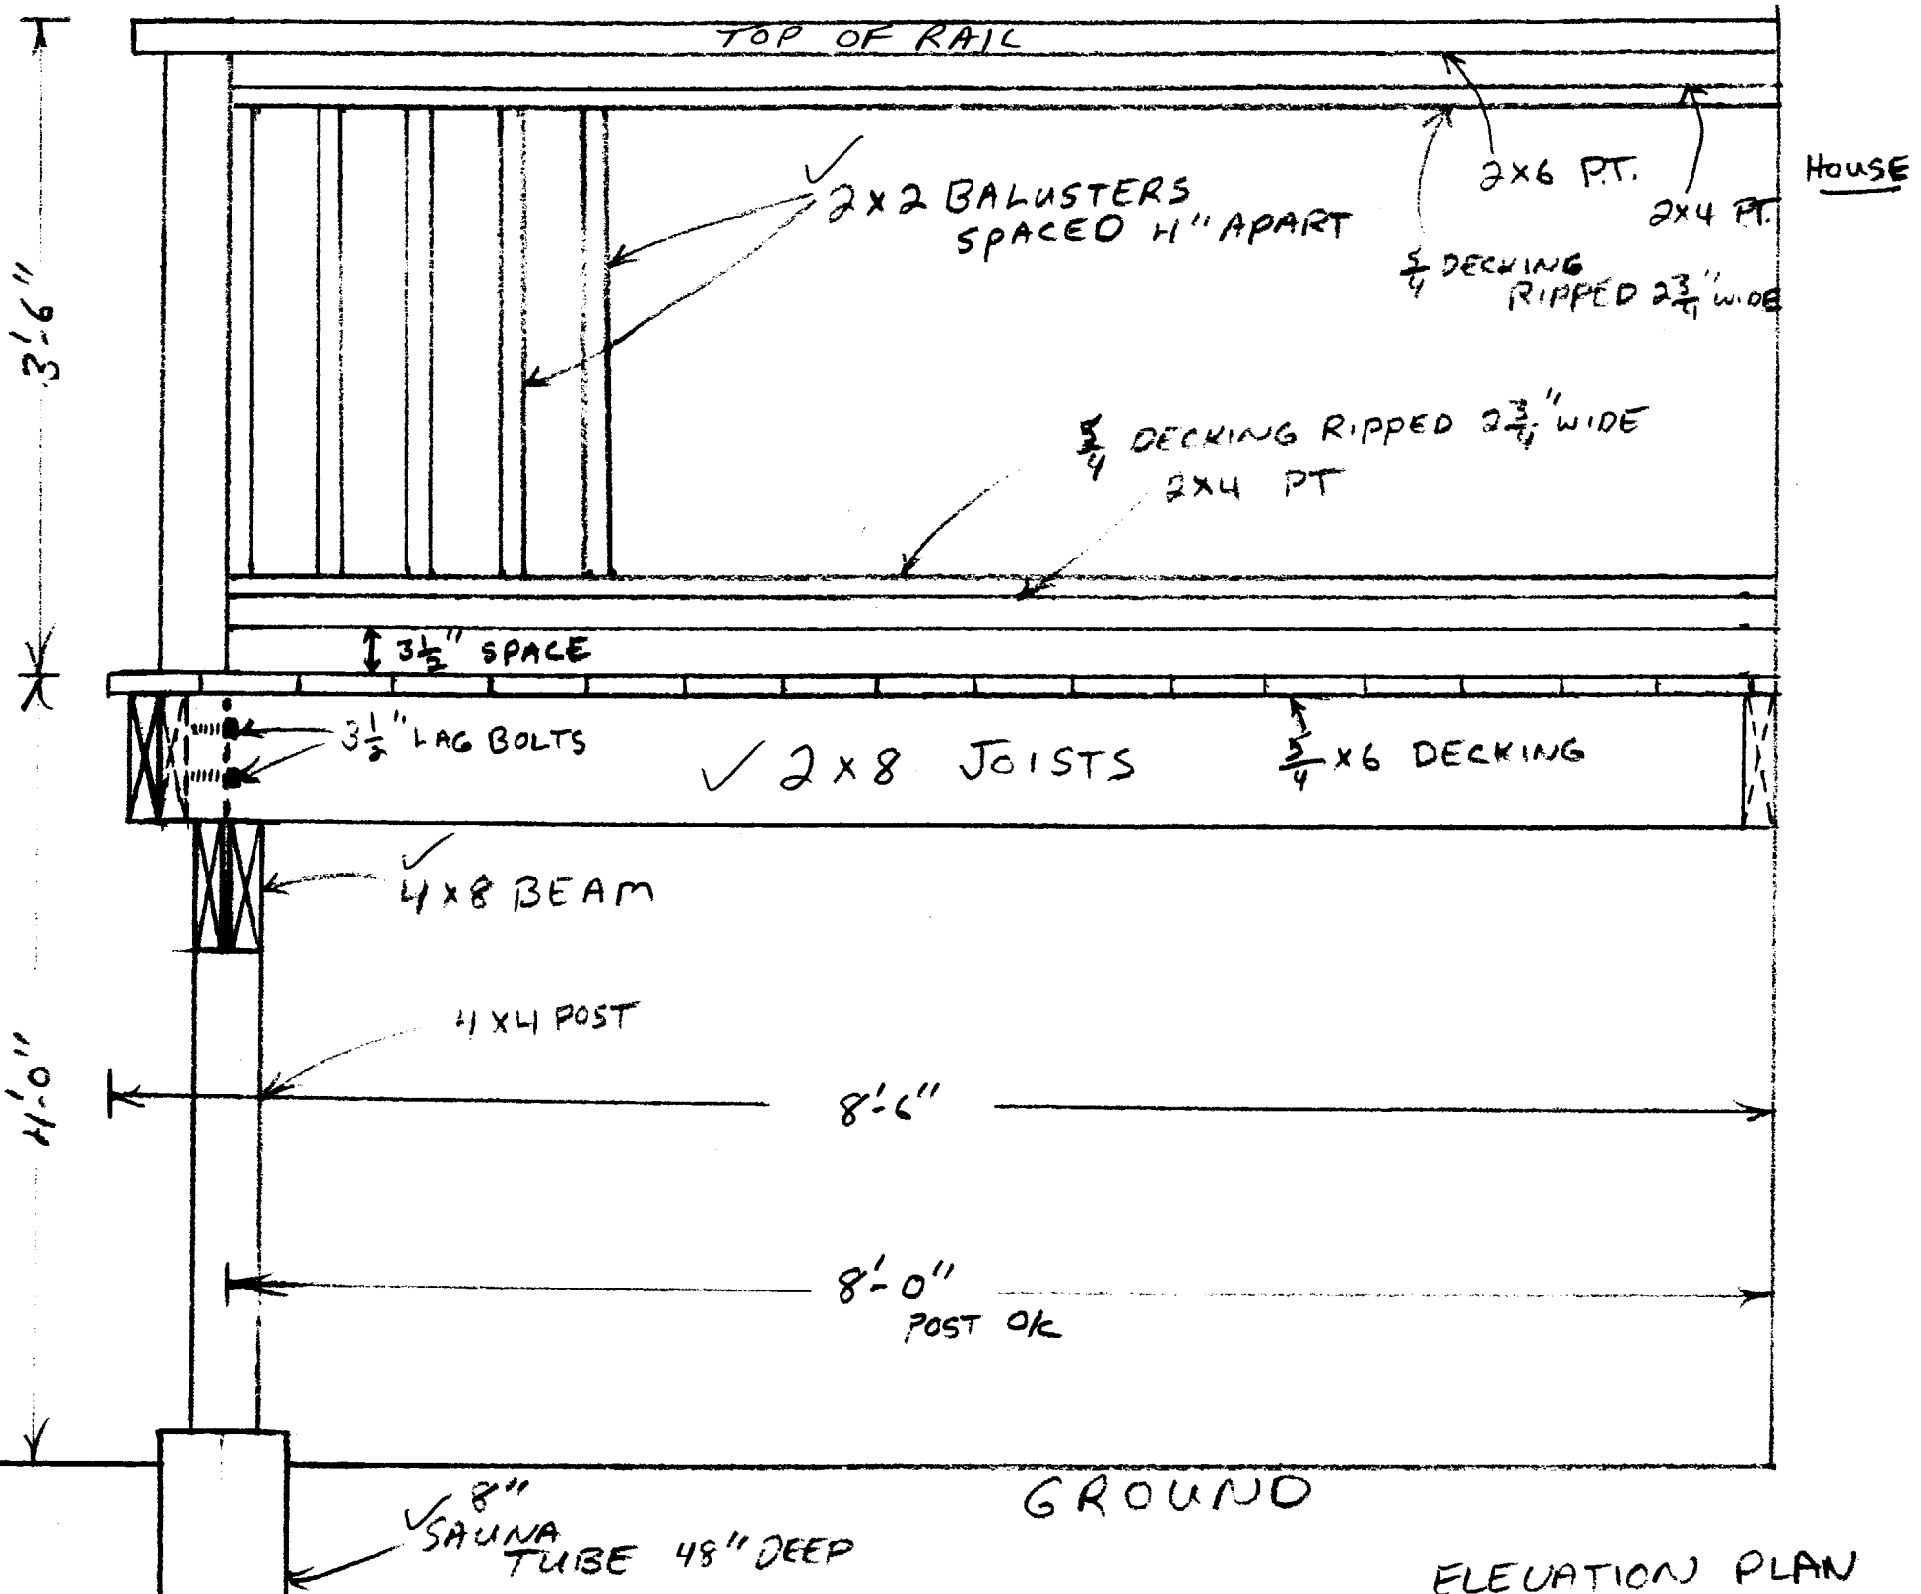 TOP OF RAIL
2x6 P.T.
HOUSE
2x4 PT.
✓
2x2 BALUSTERS
SPACED 4" APART
5/4 DECKING
RIPPED 2 3/4" WIDE
3'-6"
5/4 DECKING RIPPED 2 3/4" WIDE
2x4 PT
3 1/2" SPACE
3 1/2" LAG BOLTS
✓ 2x8 JOISTS
5/4 x6 DECKING
✓
4x8 BEAM
4x4 POST
4'-0"
8'-6"
8'-0"
POST O/C
GROUND
✓ 8"
SAUNA
TUBE 48" DEEP
ELEVATION PLAN